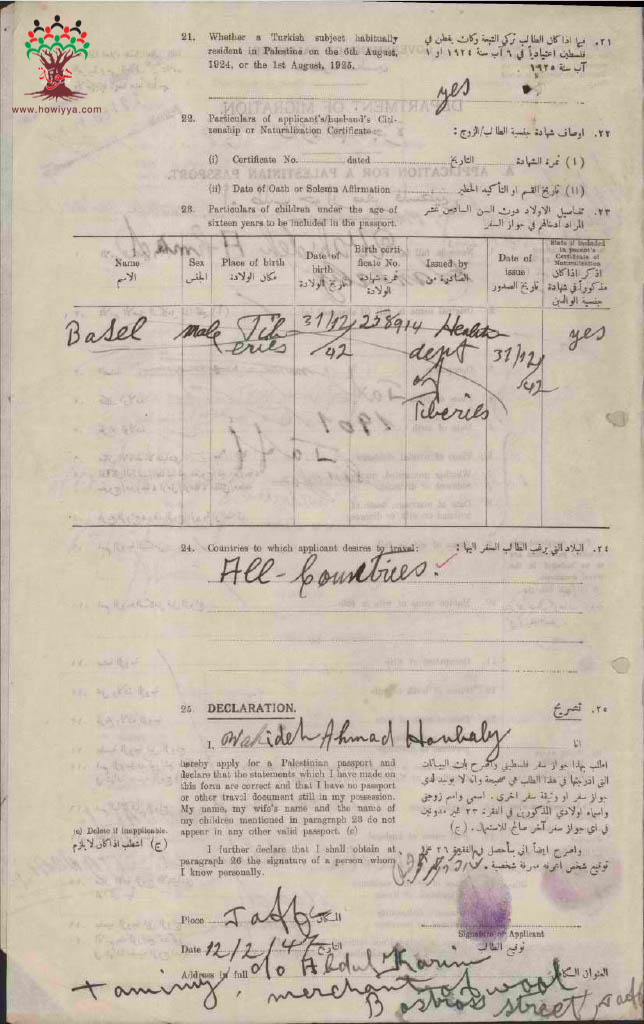 www.howiyya.com
21. Whether a Turkish subject habitually resident in Palestine on the 6th August, 1924, or the 1st August, 1925.
٢١. فيما اذا كان الطالب تركي التبعة وكان يقطن في فلسطين اعتيادياً في ٦ آب سنة ١٩٢٤ او ١ آب سنة ١٩٢٥
yes
22. Particulars of applicant's/husband's Citizenship or Naturalization Certificate:
٢٢. اوصاف شهادة جنسية الطالب/الزوج:
(i) Certificate No. dated التاريخ (١) نمرة الشهادة
(ii) Date of Oath or Solemn Affirmation (١١) تاريخ القسم او التأكيد الخطير
23. Particulars of children under the age of sixteen years to be included in the passport.
٢٣. تفاصيل الاولاد دون السن السادس عشر المراد ادخالهم في جواز السفر
Name الاسم
Sex الجنس
Place of birth مكان الولادة
Date of birth تاريخ الولادة
Birth certificate No. نمرة شهادة الولادة
Issued by الصادرة من
Date of issue تاريخ الصدور
State if included in parent's Certificate of Naturalization اذكر اذا كان مذكوراً في شهادة جنسية الوالدين
Basel male Tiberies 31/12/42 258914 Health dept of Tiberies 31/12/42 yes
24. Countries to which applicant desires to travel: ٢٤. البلاد التي يرغب الطالب السفر اليها:
All-Countries.
25. DECLARATION. ٢٥. تصريح
I, Wahideh Ahmad Hanbaly انا
hereby apply for a Palestinian passport and
declare that the statements which I have made on
this form are correct and that I have no passport
or other travel document still in my possession.
My name, my wife's name and the name of
my children mentioned in paragraph 23 do not
appear in any other valid passport. (c)
اطلب بهذا جواز سفر فلسطيني واصرح بان البيانات
التي ادرجتها في هذا الطلب هي صحيحة وانه لا يوجد لدي
جواز سفر او وثيقة سفر اخرى. اسمي واسم زوجتي
واسماء اولادي المذكورين في الفقرة ٢٣ غير مدونين
في اي جواز سفر آخر صالح للاستعمال. (ج)
(c) Delete if inapplicable.
(ج) اشطب اذا كان لا يلزم
I further declare that I shall obtain at
paragraph 26 the signature of a person whom
I know personally.
واصرح ايضاً اني سأحصل في الفقرة ٢٦ على
توقيع شخص اعرفه معرفة شخصية.
Place Jaffa المكان
Signature of Applicant
توقيع الطالب
Date 12/2/47 التاريخ
Address in full c/o Abdul Karim العنوان الكامل
Taminy, merchant of wool
Bostross street, Jaffa